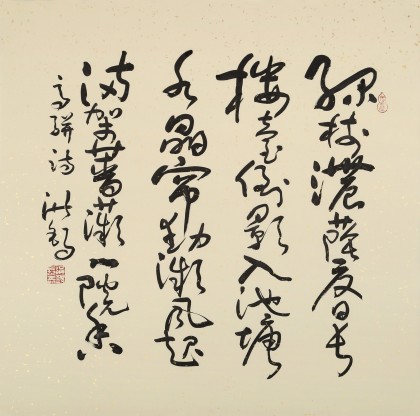 綠樹濃蔭夏日長
樓臺倒影入池塘
水晶帘動微風起
滿架薔薇一院香
高駢詩